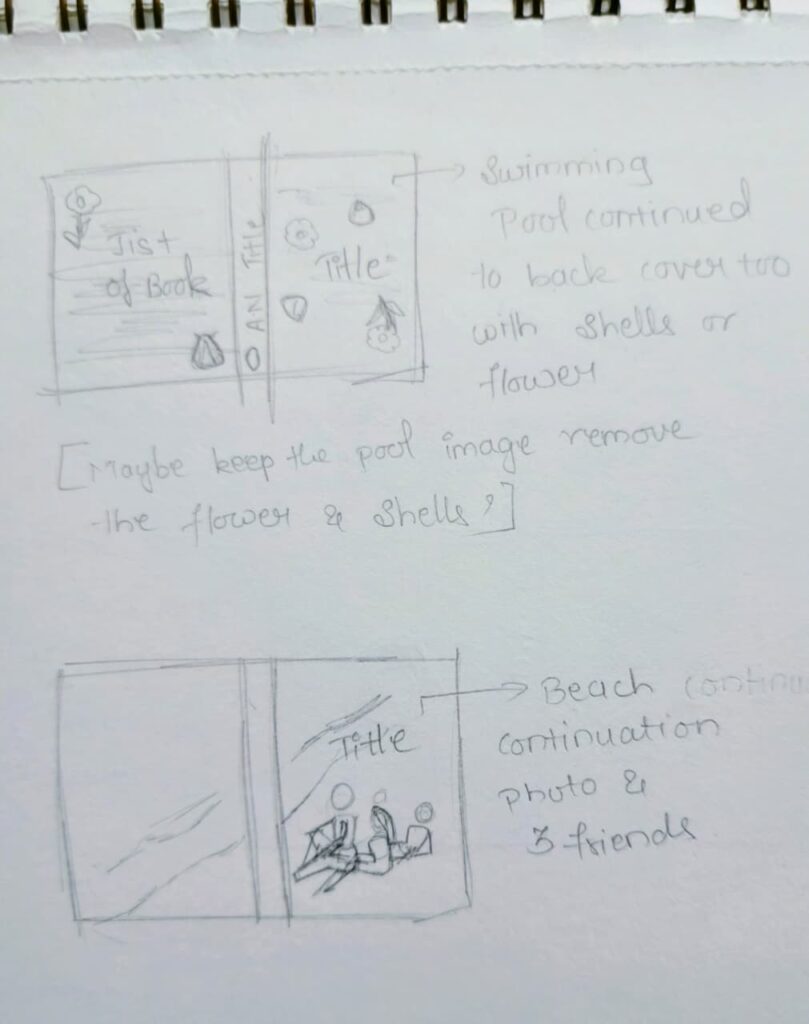 Jist
of Book
O AN Title
Title
Swimming
Pool continued
to back cover too
with shells or
flower
[Maybe keep the pool image remove
the flower & shells?]
Title
Beach continu
continuation
photo &
3 friends